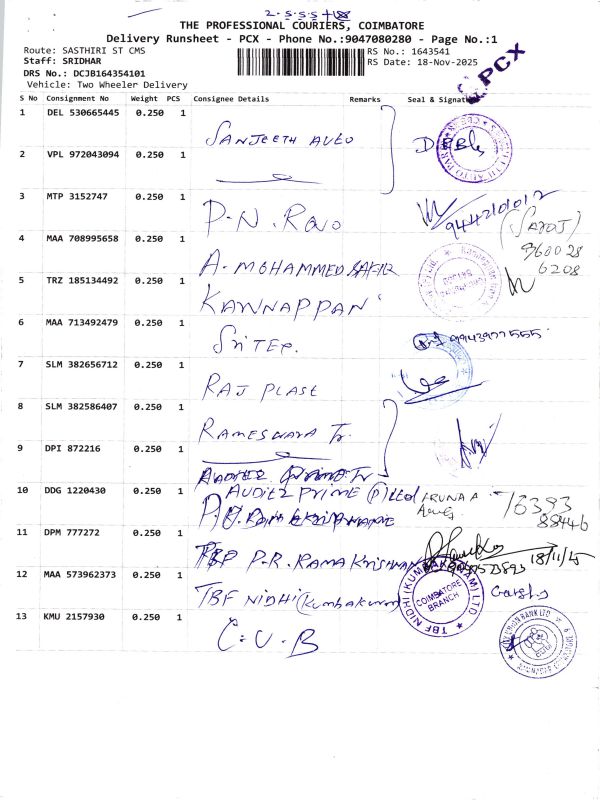 THE PROFESSIONAL COURIERS, COIMBATORE
Delivery Runsheet - PCX - Phone No.:9047080280 - Page No.:1
Route: SASTHIRI ST CMS
RS No.: 1643541
Staff: SRIDHAR
RS Date: 18-Nov-2025
DRS No.: DCJB164354101
PCX
Vehicle: Two Wheeler Delivery
S No Consignment No Weight PCS Consignee Details Remarks Seal & Signature
1 DEL 530665445 0.250 1 SANJEETH AUTO
2 VPL 972043094 0.250 1
3 MTP 3152747 0.250 1 P.N. Rao 9442101012
4 MAA 708995658 0.250 1 A. MOHAMMED
5 TRZ 185134492 0.250 1 KANNAPPAN
6 MAA 713492479 0.250 1 9943977555
7 SLM 382656712 0.250 1 RAJ PLAST
8 SLM 382586407 0.250 1 RAMESWARA Tr.
9 DPI 872216 0.250 1
10 DDG 1220430 0.250 1 AUDITZ PRIME (P) Ltd
11 DPM 777272 0.250 1 P.R. RAMA KRISHNAN 18/11/25
12 MAA 573962373 0.250 1 TBF NIDHI (Kumbakonam)
TBF NIDHI (KUMBAKONAM) LTD
COIMBATORE BRANCH
13 KMU 2157930 0.250 1 C.U.B